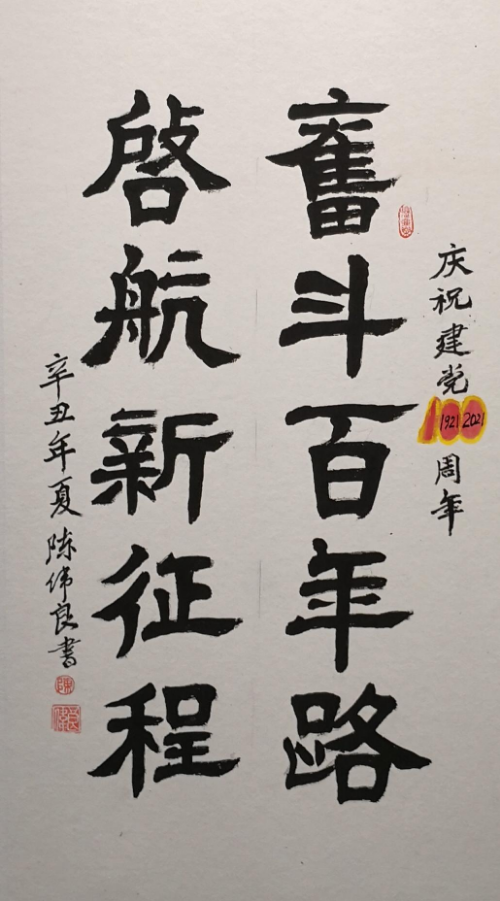 庆祝建党100周年
1921 2021
奮斗百年路
啓航新征程
辛丑年夏陈伟良书